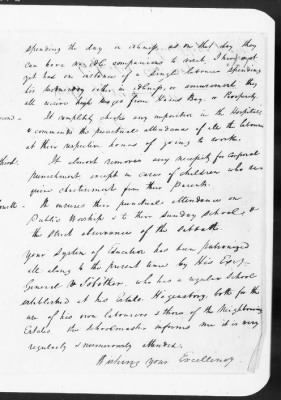 spending the day in idleness, as on that day they
can have no idle companions to meet, I have not
yet had an instance of a single labourer spending
his Saturday either in idleness, or amusement, they
all receive high wages from Hand Bay, or Property.
It completely checks any imposition in the Hospitals
& commands the punctual attendance of all the labourers
at their respective hours of going to work.
Third. It almost removes any necessity for corporal
punishment except in cases of children who re-
quire chastisement from their Parents.
It ensures their punctual attendance on
Public Worship & to their Sunday schools &
the strict observance of the Sabbath.
Your System of Education has been patronized
all along to the present time by His Excy.
General v. Scholten, who has a regular School
established at his Estate Hogensborg both for the
use of his own labourers & those of the Neighbouring
Estates. The Schoolmaster informs me it is very
regularly & numerously attended.
Wishing your Excellency